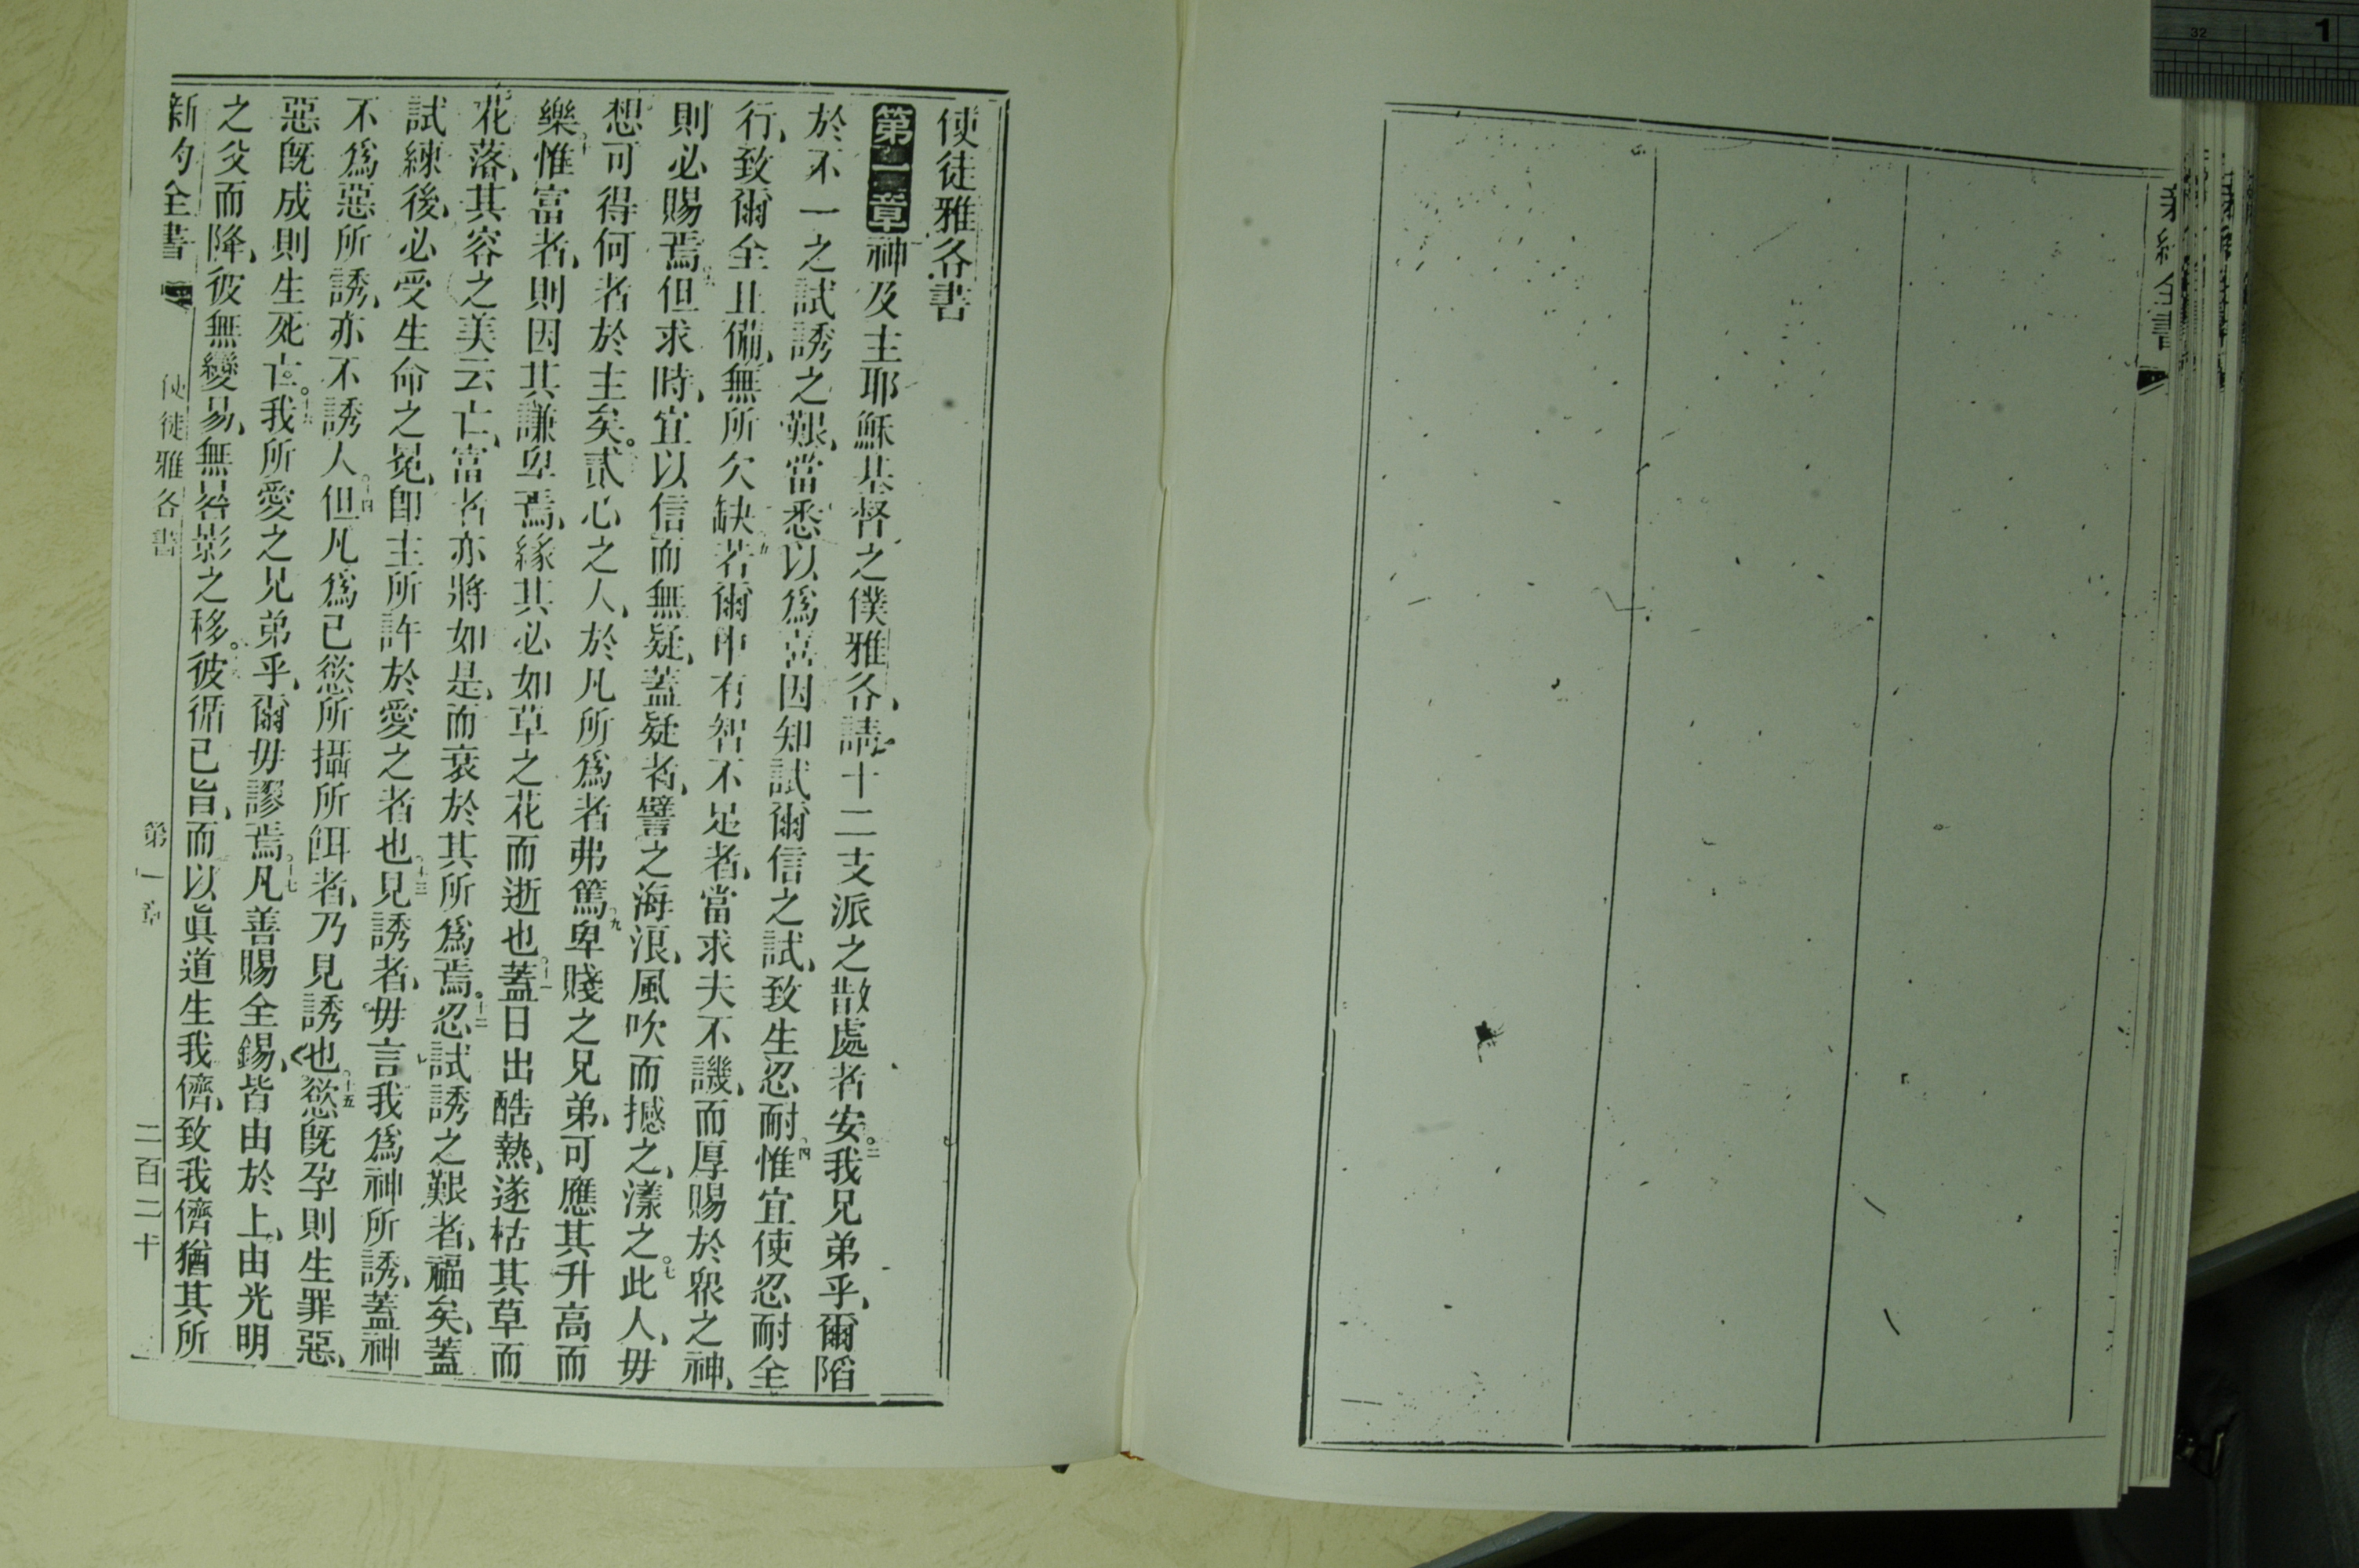 新約全書
1
32
使徒雅各書
第一章神及主耶穌基督之僕雅各、請十二支派之散處者安。二我兄弟乎、爾陷
於不一之試誘之艱、當悉以爲喜因知試爾信之試、致生忍耐、四惟宜使忍耐全
行、致爾全且備、無所欠缺若爾中有智不足者、當求夫不譏、而厚賜於衆之神、
則必賜焉、但求時、宜以信而無疑、蓋疑者、譬之海浪、風吹而撼之、漾之。七此人、毋
想可得何者於主矣。貳心之人、於凡所爲者弗篤、九卑賤之兄弟、可應其升高而
樂、十惟富者、則因其謙卑焉、緣其必如草之花而逝也、十一蓋日出酷熱、遂枯其草而
花落、其容之美云亡、富者亦將如是、而衰於其所爲焉。十二忍試誘之艱者、福矣、蓋
試練後、必受生命之冕、卽主所許於愛之者也、十三見誘者、毋言我爲神所誘、蓋神
不爲惡所誘、亦不誘人、十四但凡爲己慾所攝所餌者、乃見誘也、十五慾旣孕則生罪惡、
惡旣成則生死亡。十六我所愛之兄弟乎、爾毋謬焉、十七凡善賜全錫、皆由於上、由光明
之父而降、彼無變易、無晷影之移。彼循己旨、而以眞道生我儕、致我儕猶其所
新約全書 使徒雅各書 第一章 二百二十